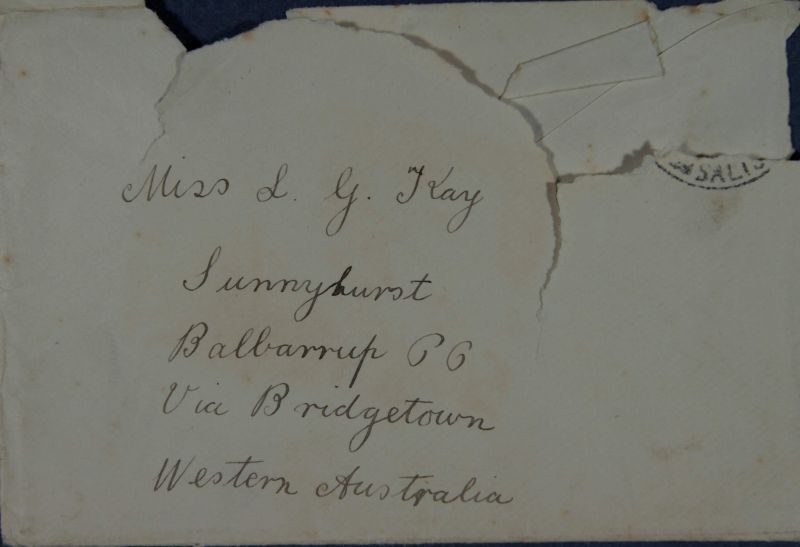 SALIS
Miss L. G. Kay
Sunnyhurst
Balbarrup P O
Via Bridgetown
Western Australia